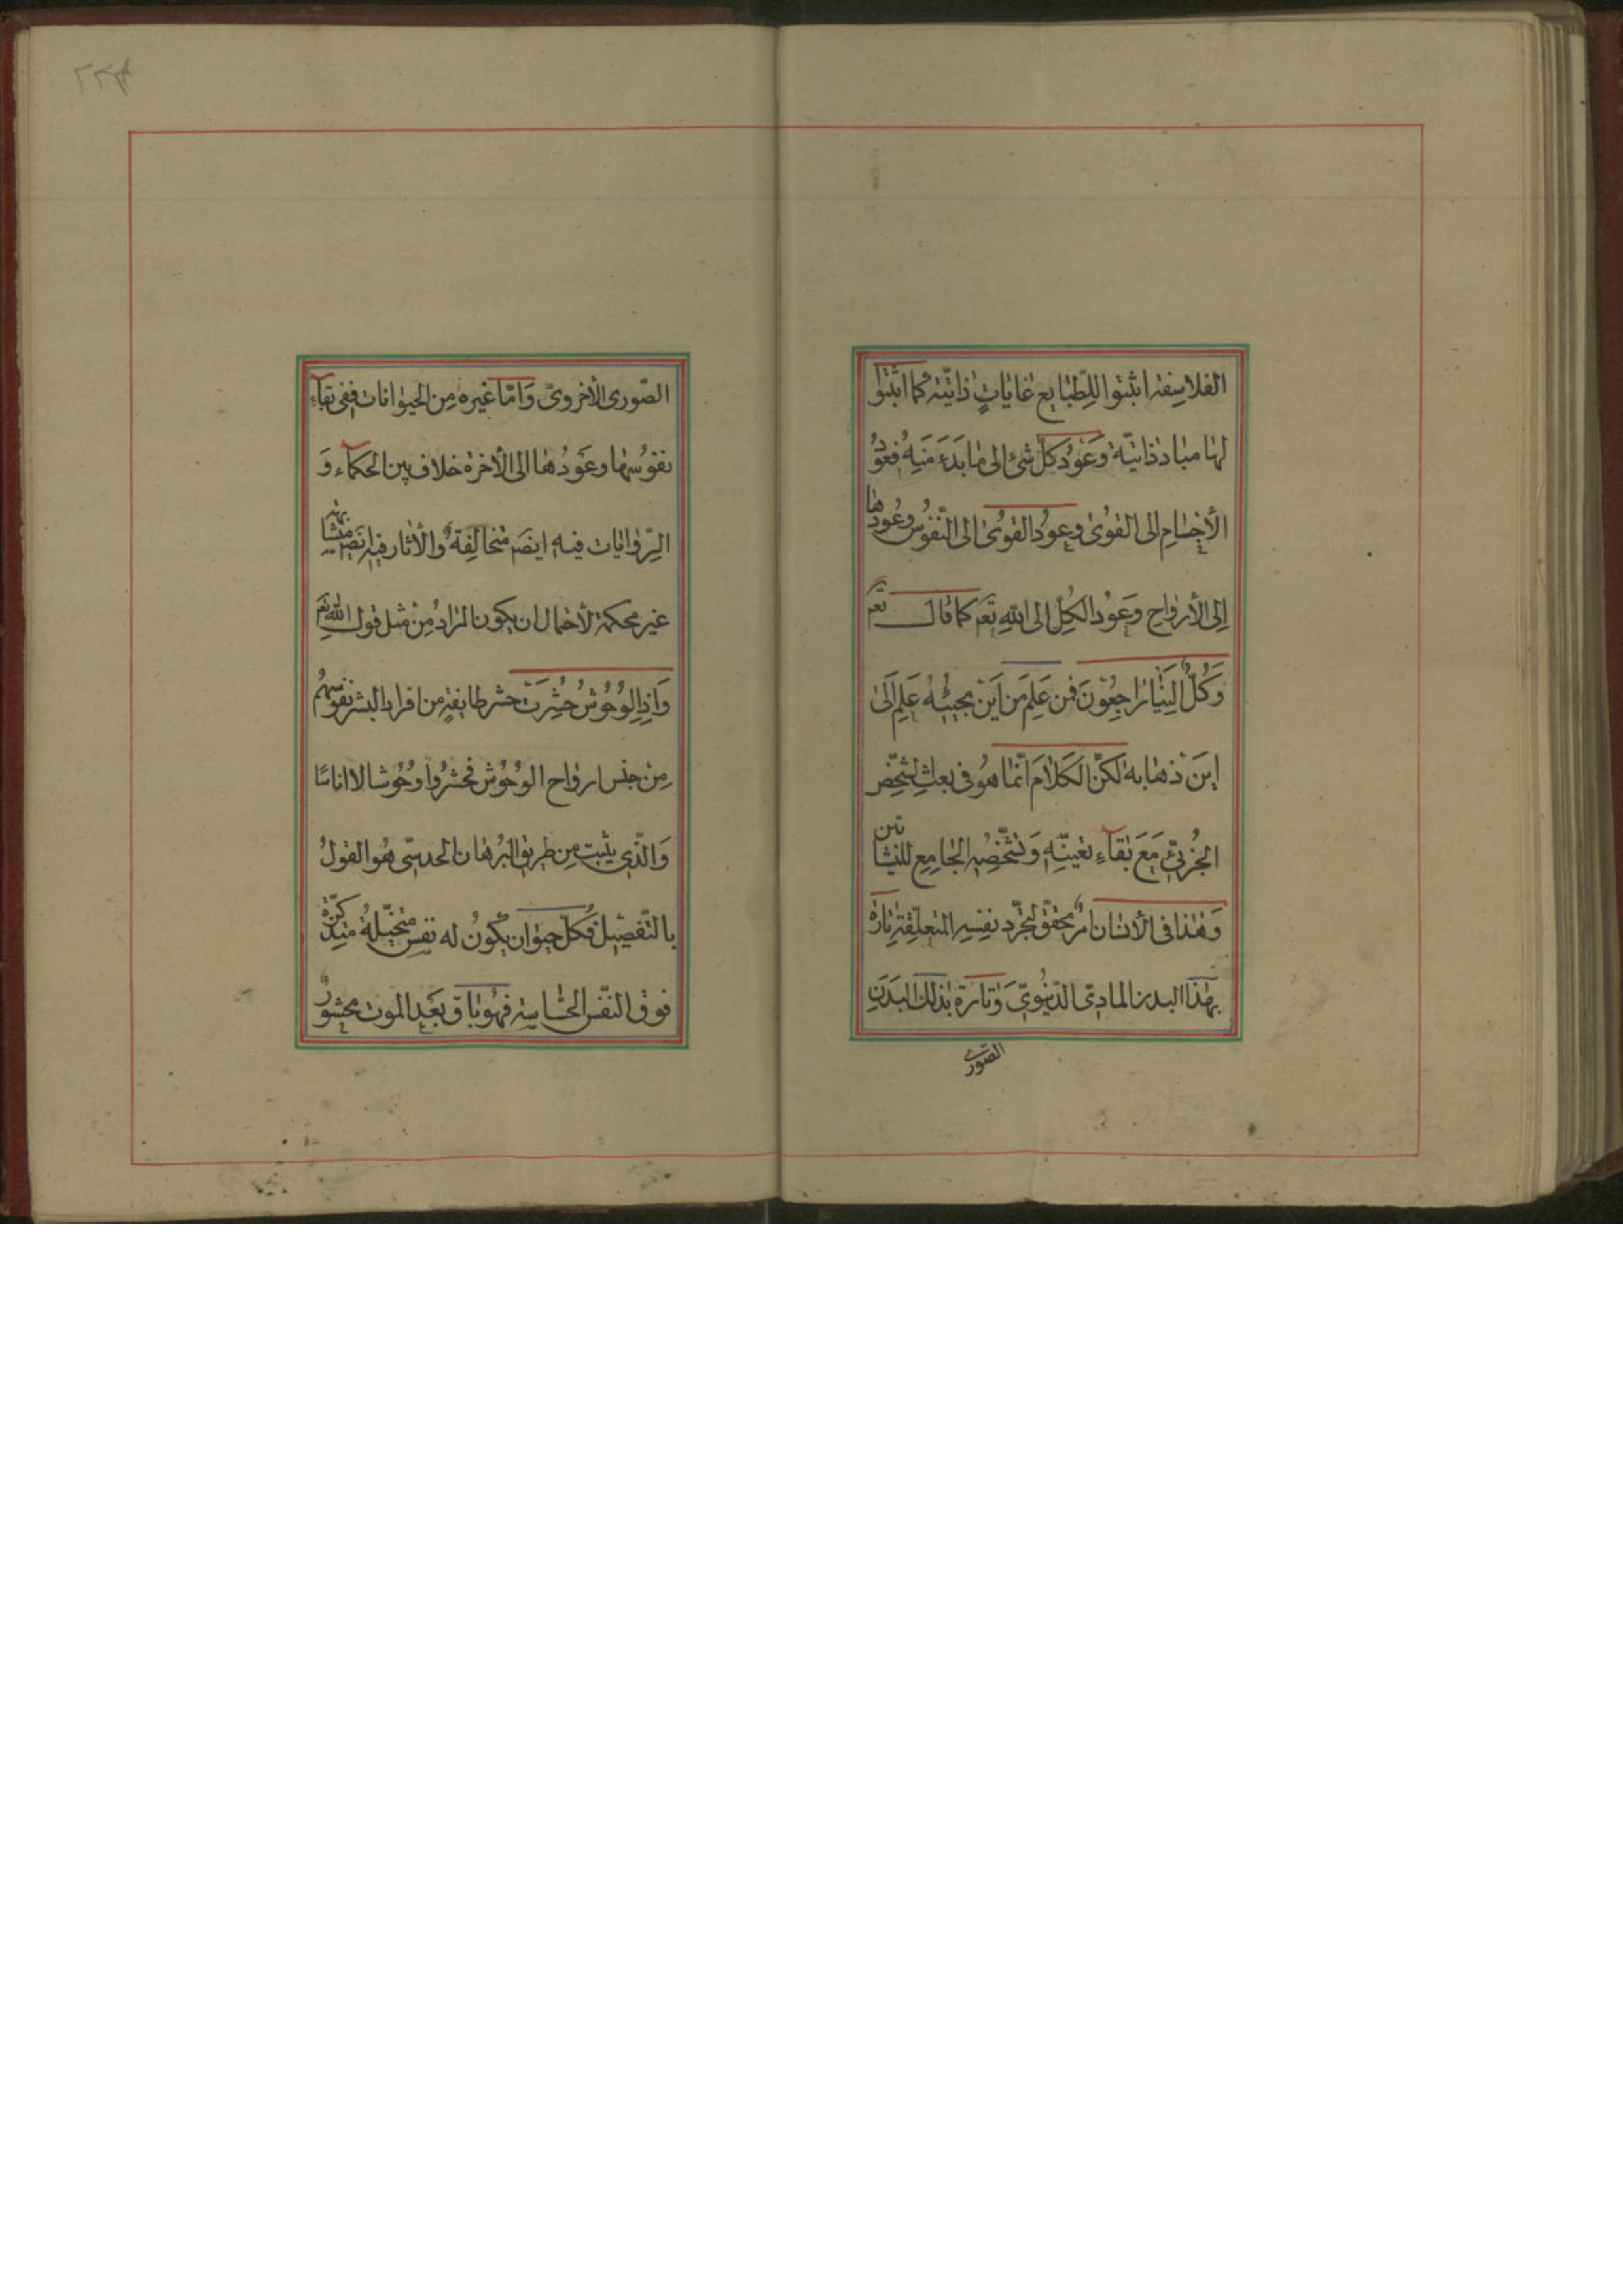 الفلاسفة اثبتوا للِطّبايع غاياتٍ ذاتيّة كما اثبتوا
لها مباد ذاتيّة وَعَوُد كلّ شئ الى ما بَدَءَ مَنِهُ فعوُدُ
الأجسٰامِ الى القوُىٰ وعوُد القوُىٰ الى النّفوُس وعُودها
اِلى الأرواٰحِ وعَوُد الكُلِّ الى اللهِ تَعٰم كما قٰالَ تعٰم
وَكُلٌّ اِليَنٰا رٰاجِعُوْنَ فمن عَلِمَ من اَيَن مجيئهُ عَلِمَ الىٰ
اينَ ذهٰابه لكنّ الكَلاٰمَ انّما هوُ فى بعثِ لشخّصِ
الجُزئىّ مَعَ بقآءِ تعينّهِ وَتشخّصُهِ الجٰامِعِ للنشأتين
وَهٰذا فى الأنسٰان امرٌ محقّق لتجّرد نفِسِهِ المتعلّقةِ تارةً
بهٰذا البدن المادىّ الدّنيُوىّ وَتارة بذلك البَدَنِ
الصّورى
٢٢٦
الصّورى الأخروىّ وَامّا غيره مِن الحيوٰانات ففى بقآءِ
نفوُسها وعَوُدُهٰا الى الأخرة خلاف بين الحكمآء وَ
الرّوٰايٰات فيه ايضَ متخالِفةٌ والأثٰار فيهِ ايضَ متشابهة
غير محكمة لأحتمال ان يكون المرٰادُ مِنْ مثل قول اللهِ تعَم
وَاذِا الوُحُوُشُ حُشِرَتْ حشر طايفةٍ من افراد البشر نفوُسهُم
مِنْ جنس ارواٰح الوُحُوُش فحشرُوا وُحُوُشا لا اناسًا
وَالّذى يثبت مِن طريق البُرهٰان الحدسىّ هُو القولُ
بالتّفصيل فكلّ حيوٰان يكوُنُ له نفس متخيّلةُ متذكّرة
فوق النّفس الحسّاسة فهُو بٰاق بَعَد الموت محشوُرٌ